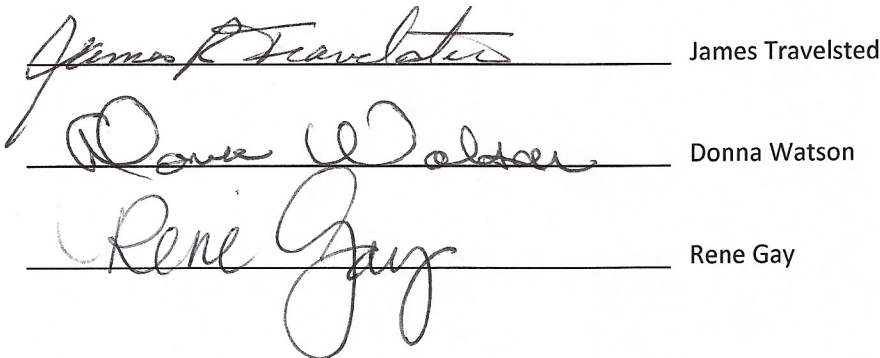 James R Travelsted James Travelsted
Donna Watson Donna Watson
Rene Gay Rene Gay